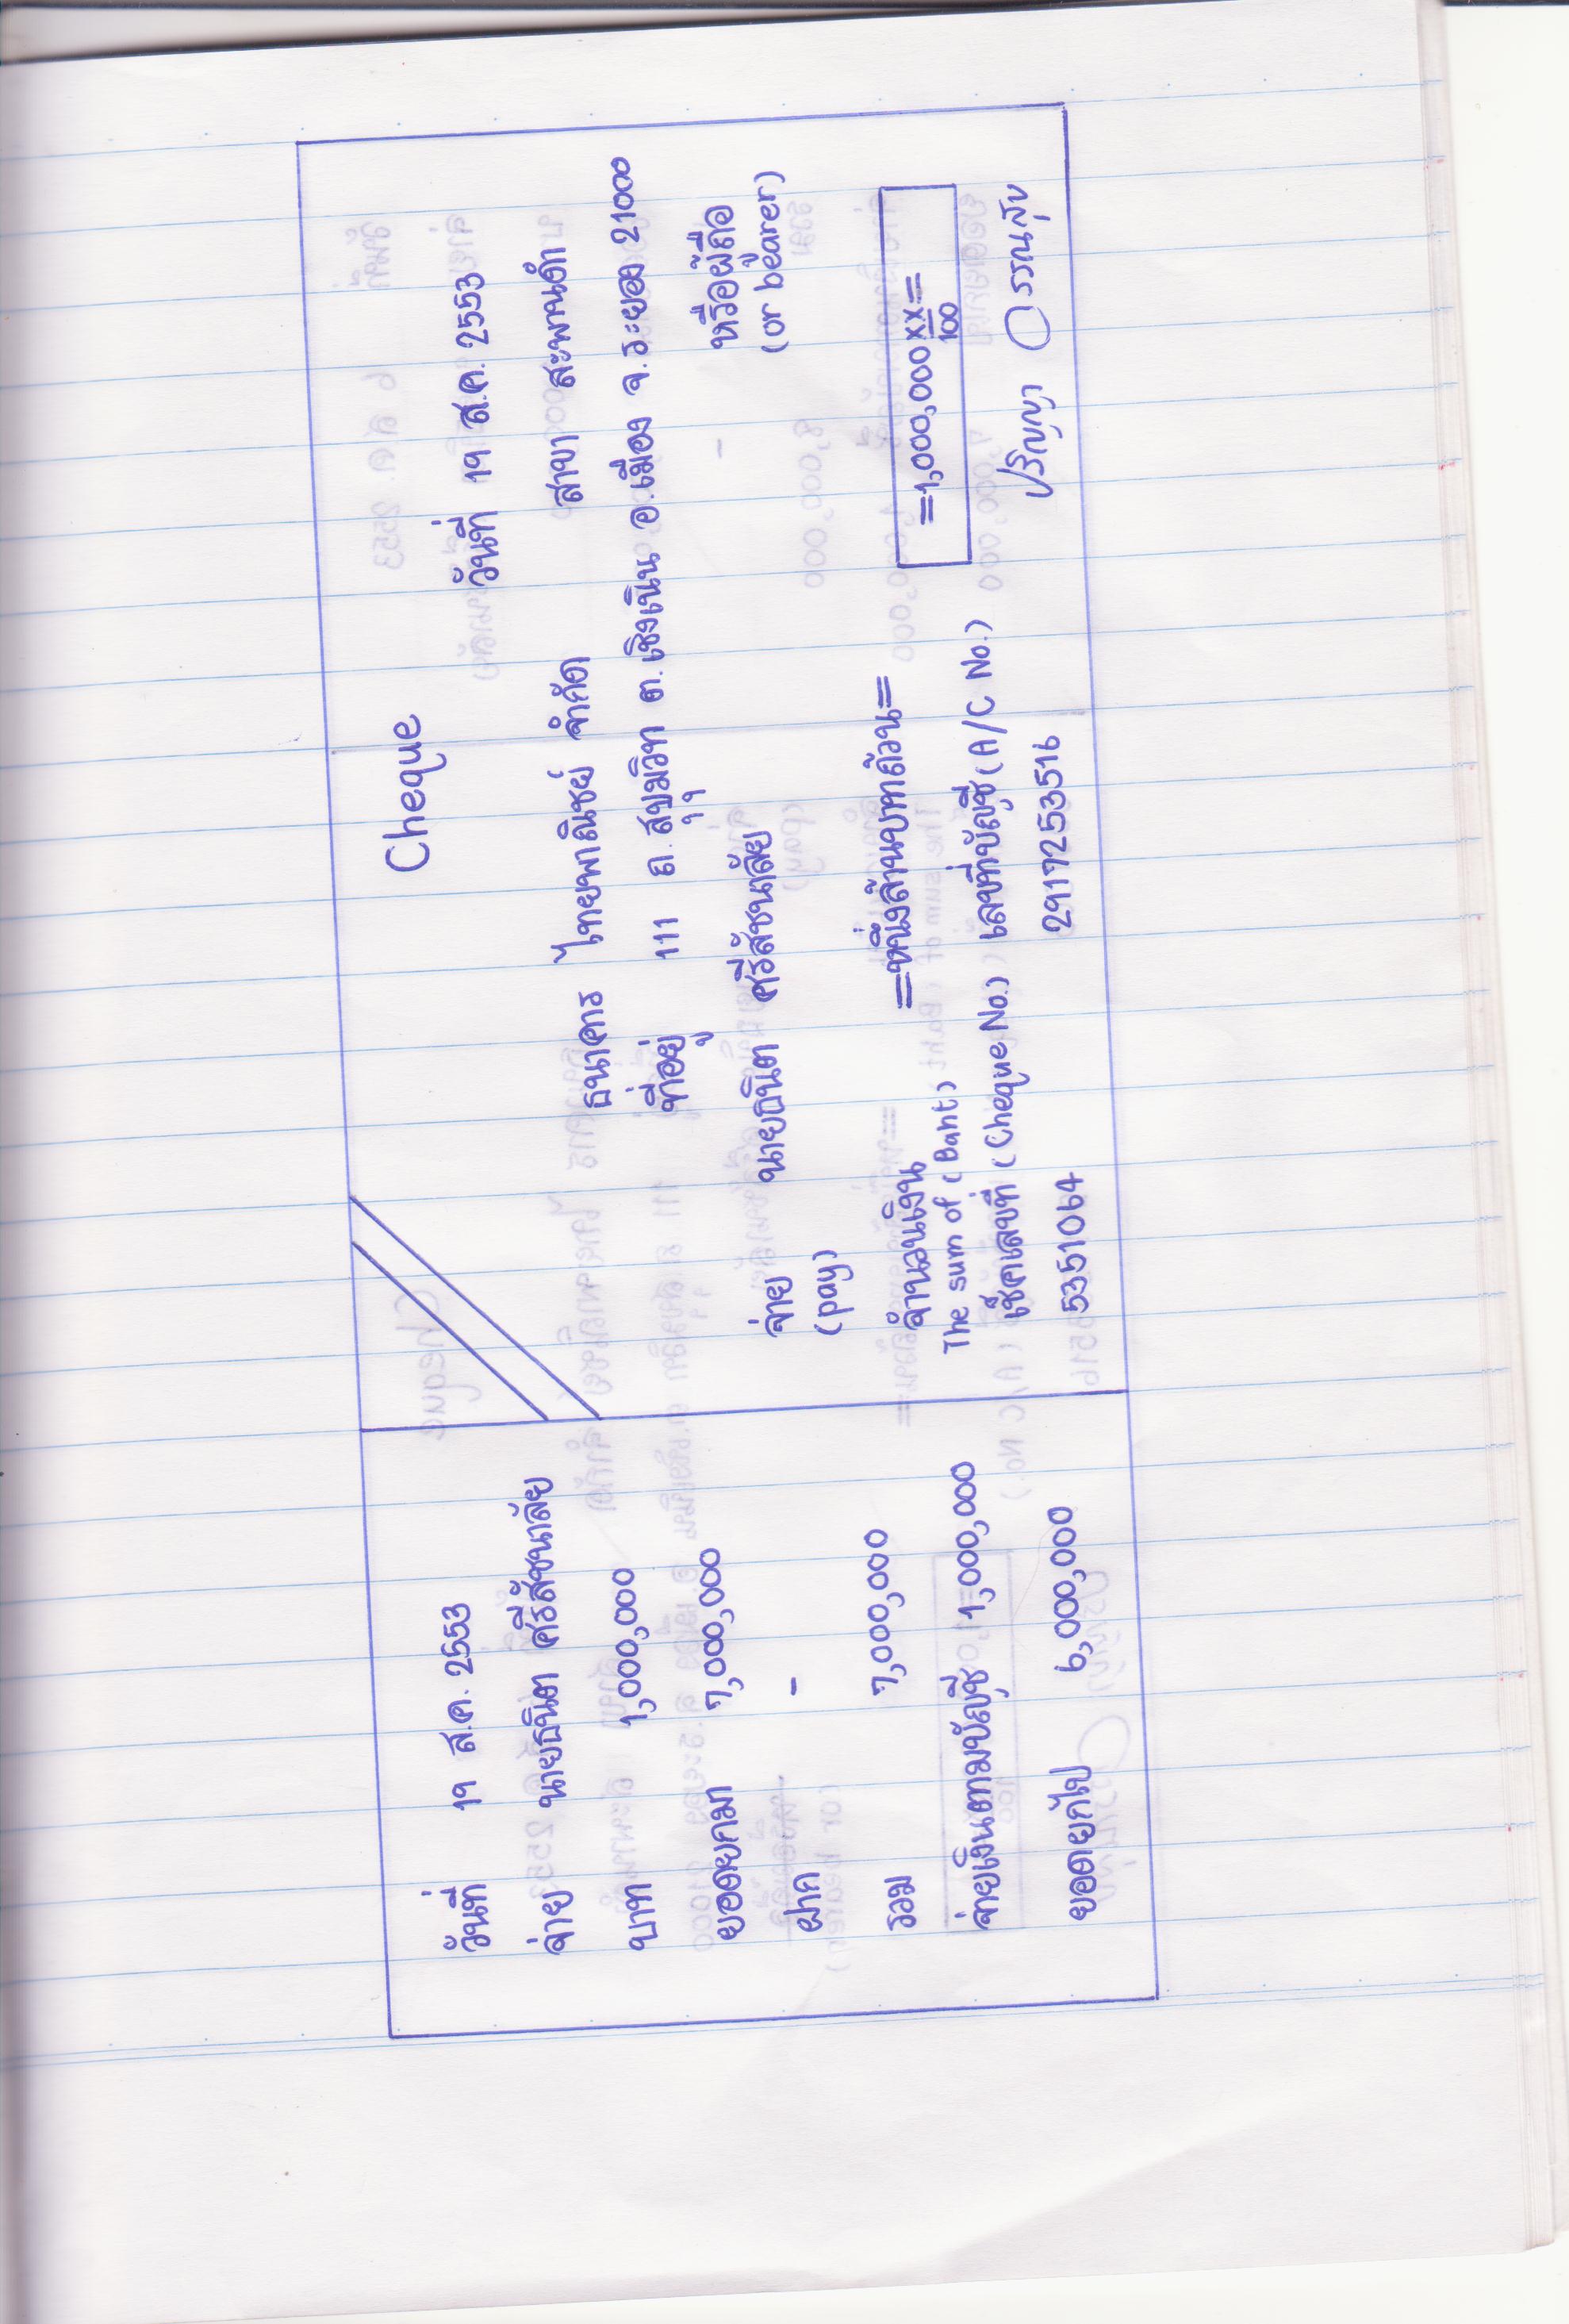 วันที่ 19 ส.ค. 2553
จ่าย นายธนิต ศรีสัชนาลัย
บาท 1,000,000
ยอดยกมา 7,000,000
ฝาก -
รวม 7,000,000
จ่ายเงินตามบัญชี 1,000,000
ยอดยกไป 6,000,000
Cheque
วันที่ 19 ส.ค. 2553
ธนาคาร ไทยพาณิชย์ จำกัด สาขา สะพานดำ
ที่อยู่ 111 ถ. สุขุมวิท ต. เชิงเนิน อ.เมือง จ. ระยอง 21000
จ่าย นายธนิต ศรีสัชนาลัย - หรือผู้ถือ
(pay) (or bearer)
จำนวนเงิน =หนึ่งล้านบาทถ้วน= =1,000,000 xx/100=
The sum of (Baht)
เช็คเลขที่ (Cheque No.) เลขที่บัญชี (A/C No.) ปริญญา วรรณสุข
5351064 2917253516